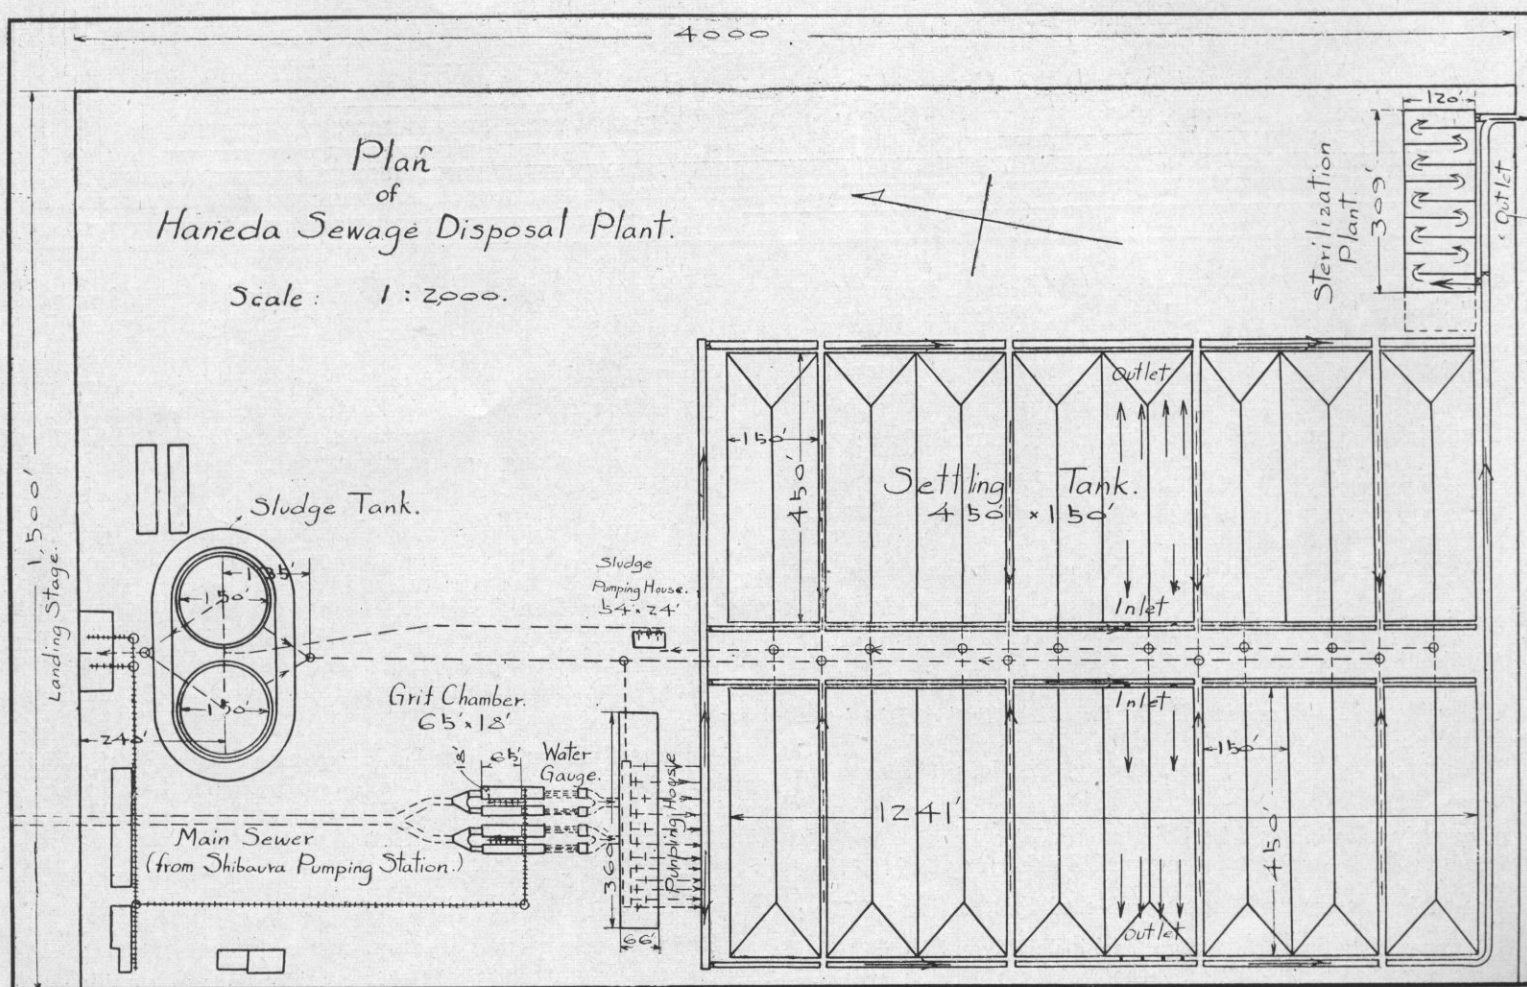 4000
Plan
of
Haneda Sewage Disposal Plant.
Scale: 1:2,000.
120'
309'
Sterilization
Plant
Outlet
1,500'
Landing Stage.
Sludge Tank.
135'
150'
150'
240'
Sludge
Pumping House.
54'×24'
Grit Chamber.
65'×18'
18'
65'
Water
Gauge.
Main Sewer
(from Shibaura Pumping Station.)
360'
66'
Pumping House
150'
450'
Outlet
Settling Tank.
450' × 150'
Inlet
Inlet
150'
1241'
450'
Outlet